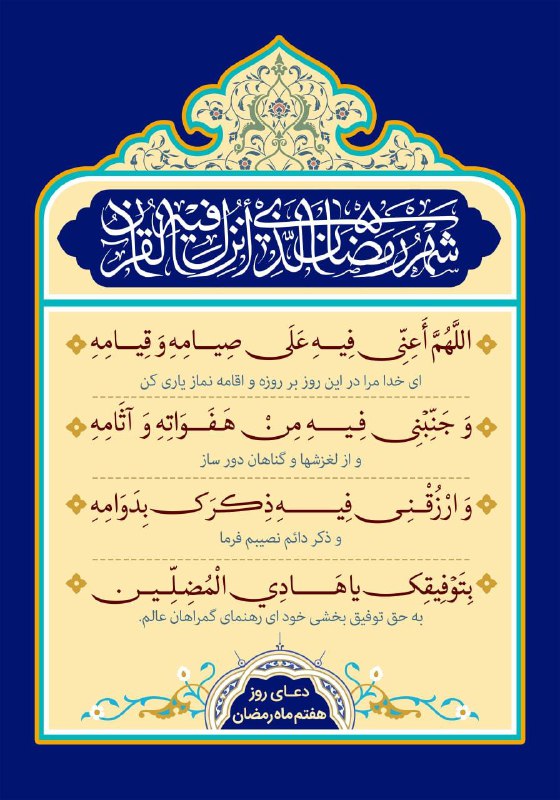 شهر رمضان الذی أنزل فیه القرآن
اللَّهُمَّ أَعِنِّی فِیـهِ عَلَی صِیـامِهِ وَ قِیـامِهِ
ای خدا مرا در این روز بر روزه و اقامه نماز یاری کن
وَ جَنِّبْنِی فِیـهِ مِنْ هَفَوَاتِهِ وَ آثَامِهِ
و از لغزشها و گناهان دور ساز
وَ ارْزُقْنِی فِیـهِ ذِکرَک بِدَوَامِهِ
و ذکر دائم نصیبم فرما
بِتَوْفِیقِک یا هَادِي الْمُضِلِّیـن
به حق توفیق بخشی خود ای رهنمای گمراهان عالم.
دعـای روز
هفتم ماه رمضان